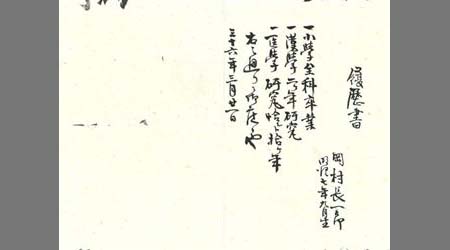 履歴書
岡村長一郎
明治七年九月生
一小學全科卒業
一漢學六ケ年研究
一医學研究拾ケ年
右之通リ御座候也
三十六年三月廿一日